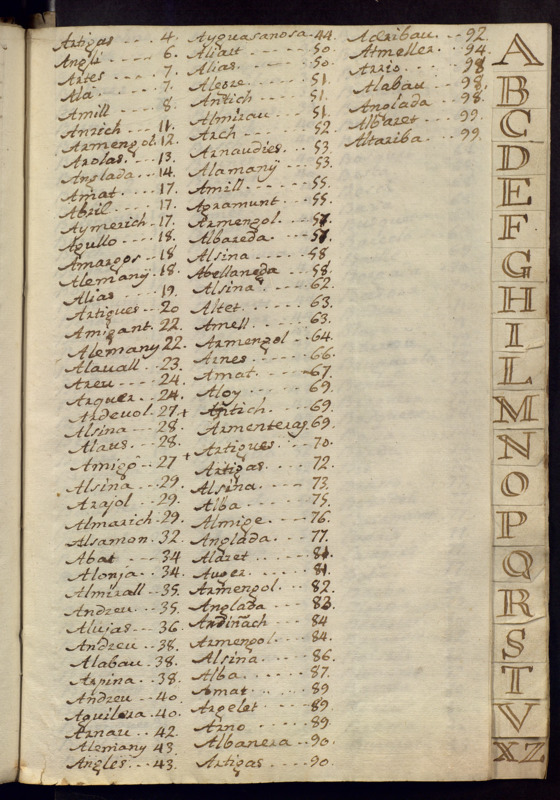 Artigas 4.
Anglí 6.
Artes 7.
Alá 7.
Amill 8.
Anrich 11.
Armengol 12.
Arolas 13.
Anglada 14.
Amat 17.
Abril 17.
Aymerich 17.
Agullo 18.
Amargos 18
Alemany 18.
Alias 19.
Artigues 20
Amigant 22.
Alemany 22.
Alavall 23.
Areu 24.
Arquer 24.
Ardevol 27+
Alsina 28.
Alaus 28.
Amigó 27+
Alsina 29.
Arajol 29.
Almarich 29.
Alsamon 32
Abat 34
Alonja 34.
Almirall 35.
Andreu 35.
Alujas 36
Andreu 38.
Alabau 38.
Arpina 38.
Andreu 40.
Aguilera 40.
Arnau 42
Alemany 43
Anglés 43.
Ayguasanosa 44.
Aliart 50.
Alias 50.
Alegre 51.
Antich 51.
Almirau 51.
Arch 52.
Arnaudies 53.
Alamany 53.
Amill 55.
Agramunt 55.
Armengol 57.
Albareda 57.
Alsina 58
Abellaneda 58.
Alsina 62
Altet 63.
Amell 63.
Armengol 64.
Arnes 66.
Amat 67.
Aloy 69.
Antich 69.
Armenteras 69.
Artigues 70.
Artigas 72.
Alsina 73.
Alba 75.
Almige 76.
Anglada 77.
Alaret 81.
Auger 81.
Armengol 82.
Anglada 83.
Ardiñach 84
Armengol 84.
Alsina 86.
Alba 87.
Amat 89
Argelet 89.
Arno 89.
Albanera 90.
Artigas 90.
Adribau 92.
Atmeller 94.
Arrio 98
Alabau 98.
Anglada 98.
Albaret 99.
Altariba 99.
A
B
C
D
E
F
G
H
I
L
M
N
O
P
Q
R
S
T
V
XZ